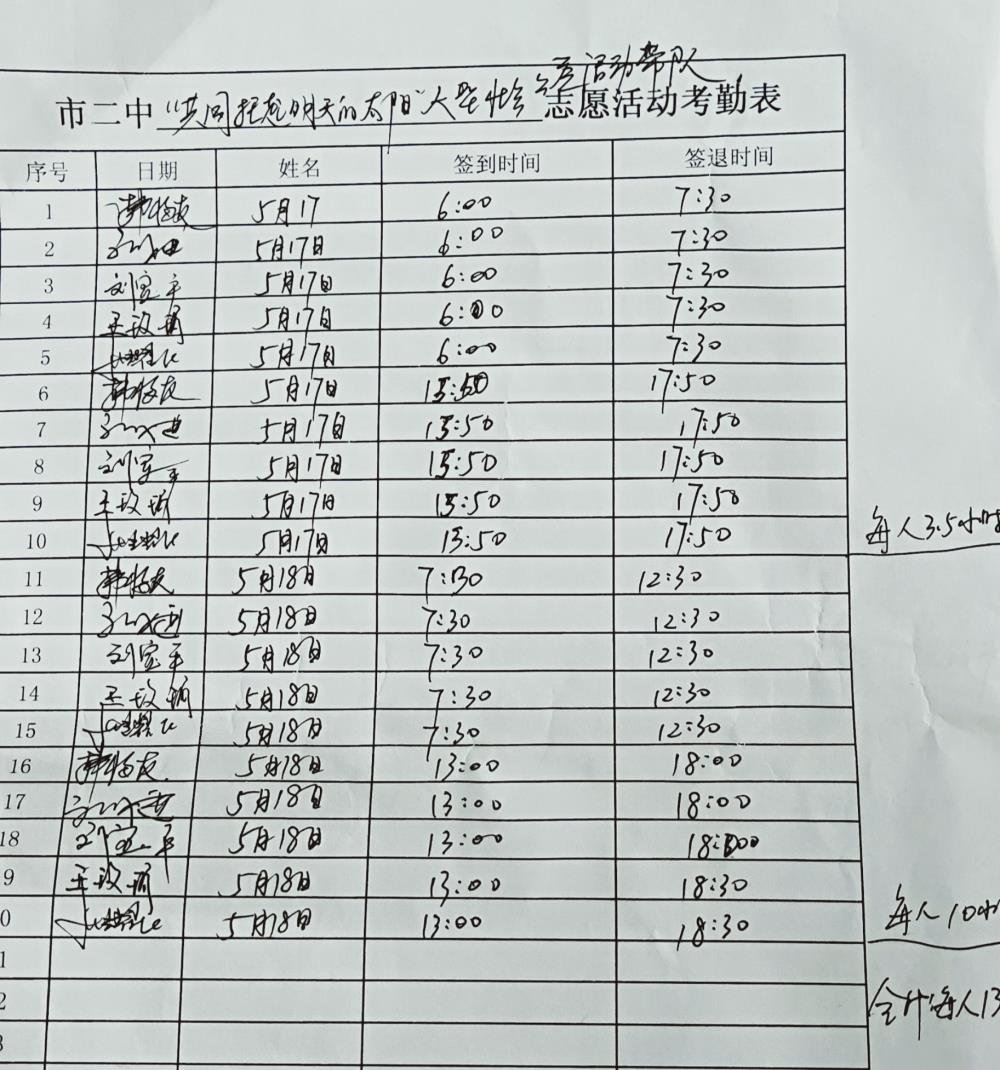 公益活动带队
市二中"共同托起明天的太阳"大型社会志愿活动考勤表
序号 日期 姓名 签到时间 签退时间
1 5月17 6:00 7:30
2 5月17日 6:00 7:30
3 刘宝平 5月17日 6:00 7:30
4 王玫瑜 5月17日 6:00 7:30
5 5月17日 6:00 7:30
6 5月17日 15:50 17:50
7 5月17日 15:50 17:50
8 刘宝平 5月17日 15:50 17:50
9 王玫瑜 5月17日 15:50 17:50
10 5月17日 15:50 17:50 每人3.5小时
11 5月18日 7:30 12:30
12 5月18日 7:30 12:30
13 刘宝平 5月18日 7:30 12:30
14 王玫瑜 5月18日 7:30 12:30
15 5月18日 7:30 12:30
16 5月18日 13:00 18:00
17 5月18日 13:00 18:00
18 刘宝平 5月18日 13:00 18:00
9 王玫瑜 5月18日 13:00 18:30
0 5月18日 13:00 18:30 每人10小
1
2 合计每人13
3